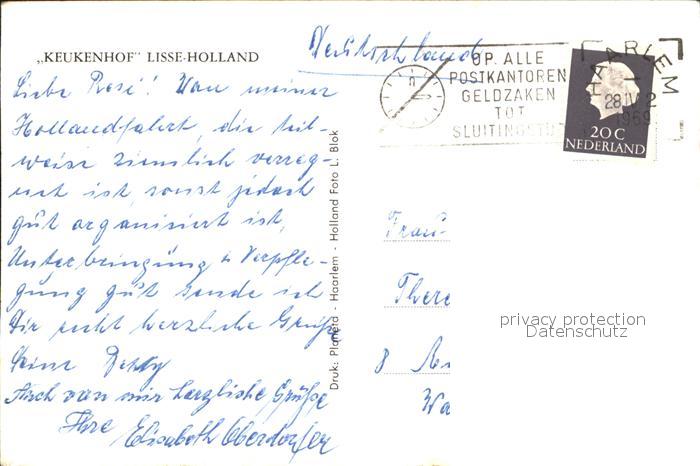 „KEUKENHOF" LISSE-HOLLAND
Deutschland
OP. ALLE
POSTKANTOREN
GELDZAKEN
TOT
SLUITINGSTIJD
HAARLEM
28 IV 2
1969
20 C
NEDERLAND
Liebe Resi! Von meiner
Hollandfahrt, die teil-
weise ziemlich verreg-
net ist, sonst jedoch
gut organisiert ist,
Unterbringung u Verpfle-
gung gut sende ich
Dir recht herzliche Grüße
Deine
Auch von mir herzliche Grüße
Ihre Elisabeth Oberdorfer
Druk: Planeta - Haarlem - Holland Foto L. Blok
Frau
There
8
privacy protection
Datenschutz